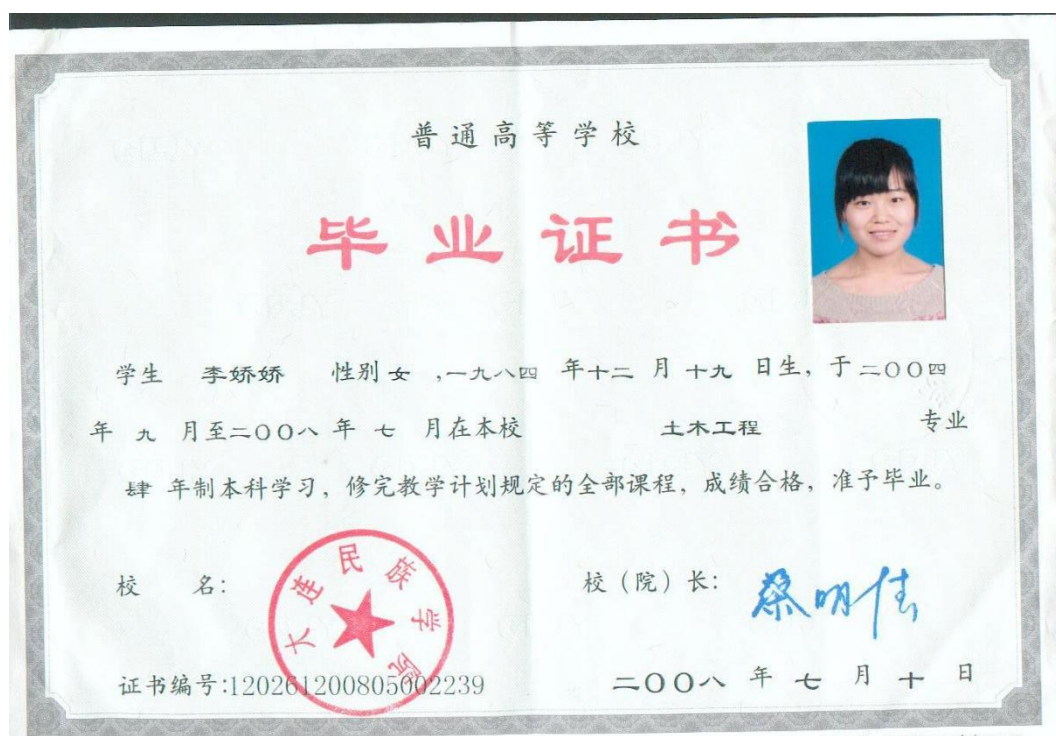 普通高等学校
毕业证书
学生 李娇娇 性别 女 ,一九八四 年十二 月 十九 日生，于二〇〇四
年 九 月至二〇〇八 年 七 月在本校 土木工程 专业
肆 年制本科学习，修完教学计划规定的全部课程，成绩合格，准予毕业。
校 名：
大连民族学院
校（院）长：
蔡明佳
证书编号:120261200805002239
二〇〇八 年 七 月 十 日